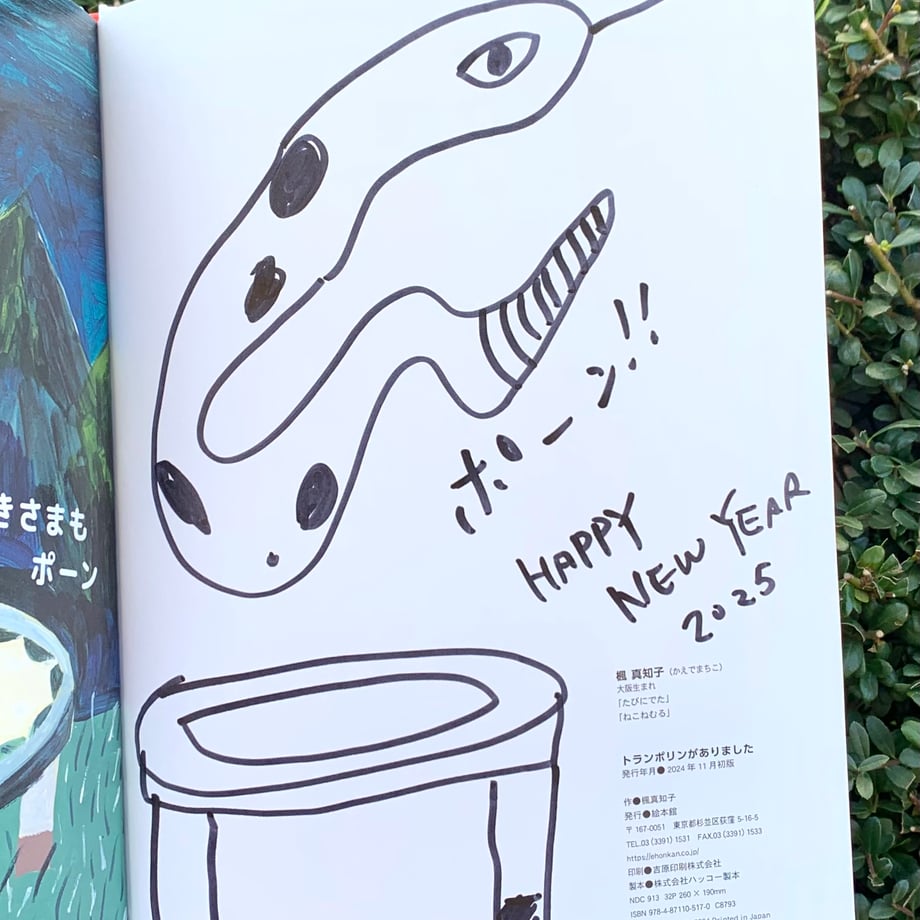 きさまも
ポーン
ポーン!!
HAPPY
NEW YEAR
2025
楓 真知子（かえでまちこ）
大阪生まれ
「たびにでた」
「ねこねむる」
トランポリンがありました
発行年月●2024年11月初版
作●楓真知子
発行●絵本館
〒167-0051 東京都杉並区荻窪5-16-5
TEL.03(3391)1531 FAX.03(3391)1533
https://ehonkan.co.jp/
印刷●吉原印刷株式会社
製本●株式会社ハッコー製本
NDC 913 32P 260×190mm
ISBN 978-4-87110-517-0 C8793
Printed in Japan